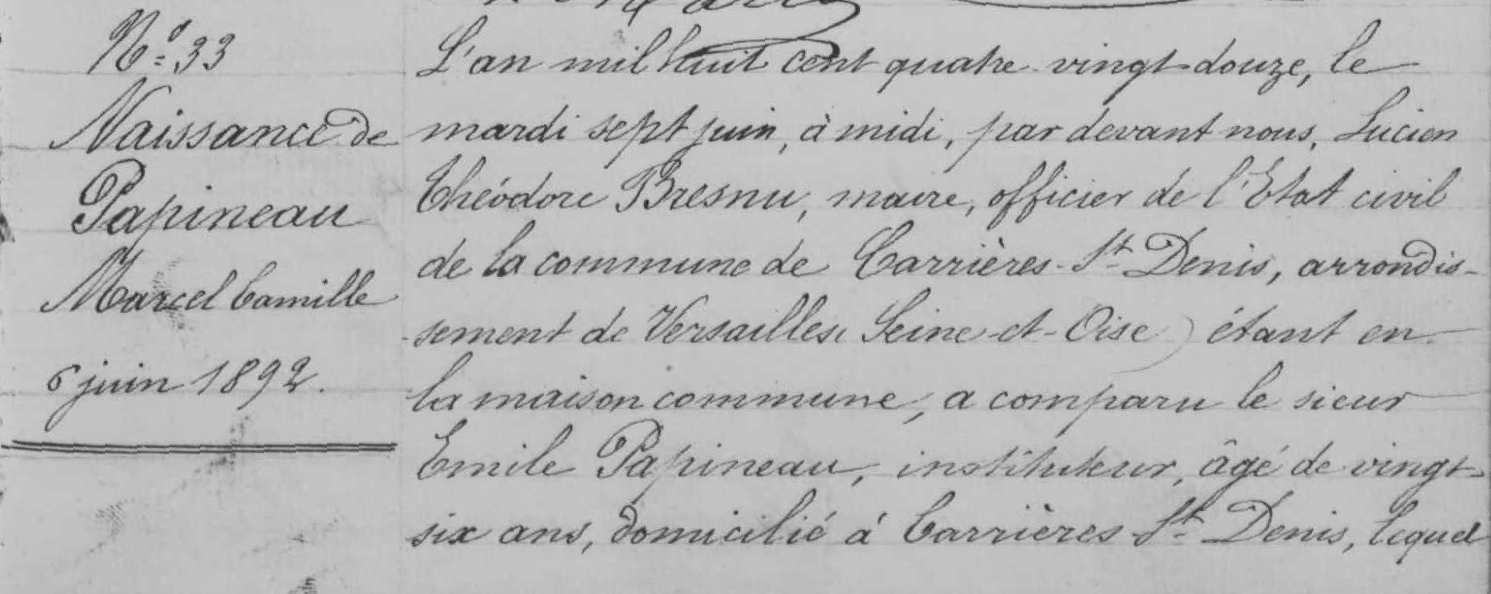 Nº 33
Naissance de
Papineau
Marcel Camille
6 juin 1892.
L'an mil huit cent quatre-vingt-douze, le
mardi sept juin, à midi, par devant nous, Lucien
Théodore Bresnu, maire, officier de l'Etat civil
de la commune de Carrières-St Denis, arrondis-
-sement de Versailles (Seine-et-Oise) étant en
la maison commune, a comparu le sieur
Emile Papineau, instituteur, âgé de vingt-
six ans, domicilié à Carrières-St Denis, lequel